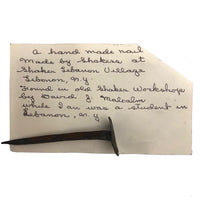 A hand made nail
Made by Shakers at
Shaker Lebanon Village
Lebonon, N.Y
Found in old Shaker Workshops
by David J. Malcolm
while I au a student in
Lebanon, N.Y